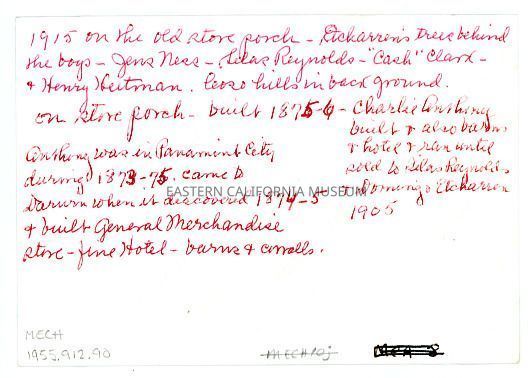 1915 on the old store porch - Etcharren's trees behind
the boys - Jens Ness - Silas Reynolds - "Cash" Clark -
& Henry Heitman. Coso hills in back ground.
on store porch - built 1875-6 - Charlie Anthony
built & also barns
& hotel & ran until
sold to Silas Reynolds
& Domingo Etcharren
1905
Anthony was in Panamint City
during 1873-75. came to
Darwin when it discovered 1874-5
& built General Merchandise
store - fine Hotel - barns & corralls.
EASTERN CALIFORNIA MUSEUM
MECH
1955.912.90